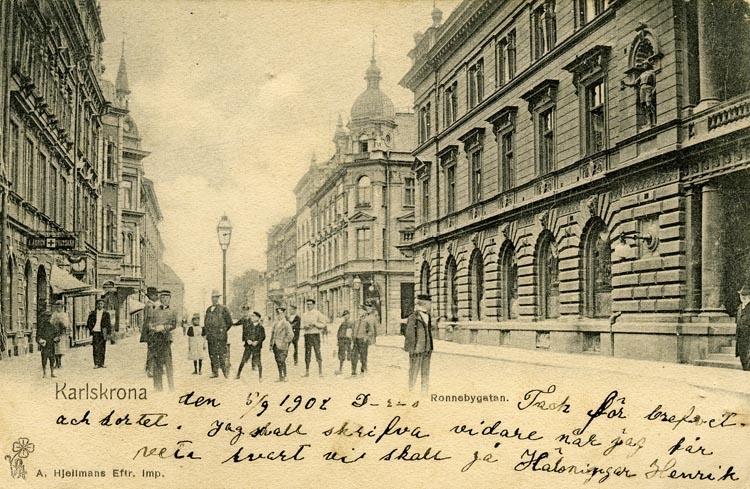 Karlskrona
den 5/9 1902 Ronnebygatan. Tack för brefvet
och kortet. Jag skall skrifva vidare när jag får
veta hvart vi skall gå Hälsningar Henrik
A. Hjellmans Eftr. Imp.